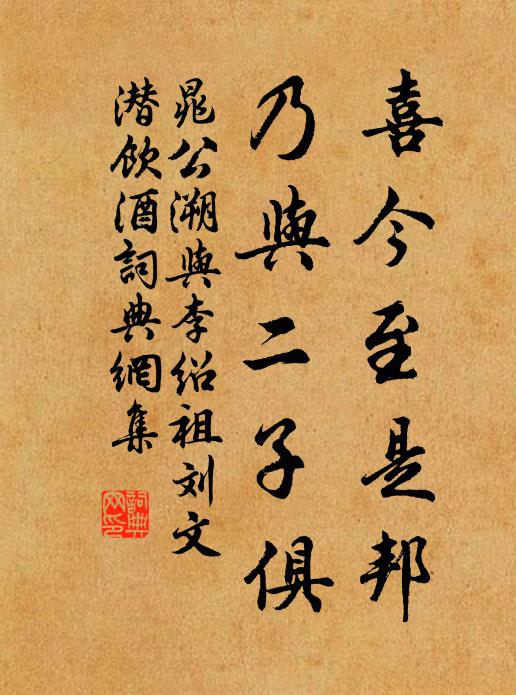 喜今至是邦
乃與二子俱
晁公溯與李绍祖刘文
潜飲酒詞典網集
詞典
网印